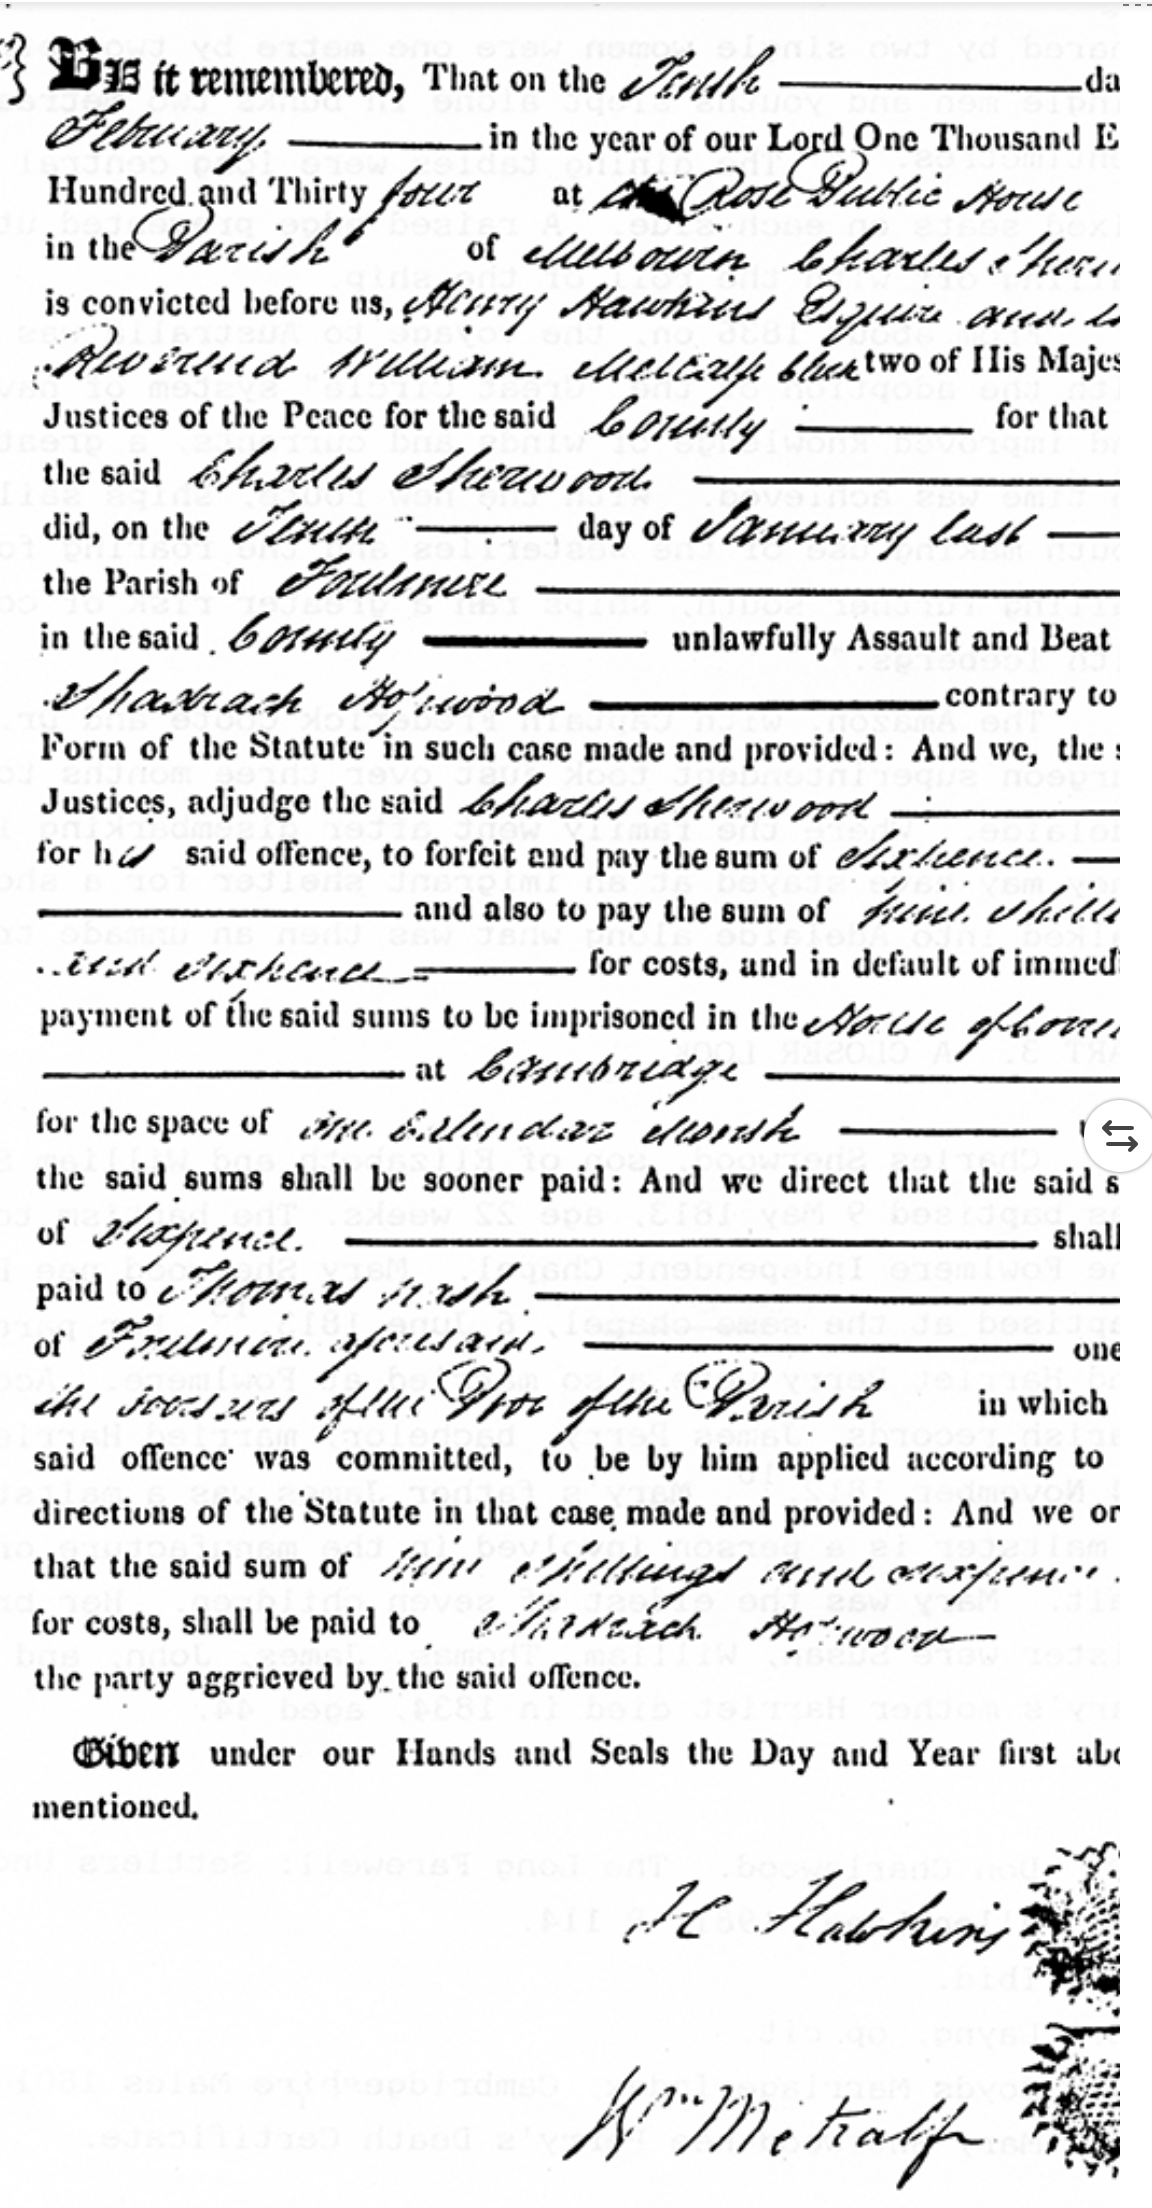 BE it remembered, That on the Tenth da
February in the year of our Lord One Thousand E
Hundred and Thirty four at the Rose Public House
in the Parish of Melbourn Charles Sherw
is convicted before us, Henry Hawkins Esquire and
Reverend William Metcalfe Clerk two of His Majes
Justices of the Peace for the said County for that
the said Charles Sherwood
did, on the Tenth day of January last
the Parish of Foulmire
in the said County unlawfully Assault and Beat
Shadrach Horwood contrary to
Form of the Statute in such case made and provided: And we, the s
Justices, adjudge the said Charles Sherwood
for his said offence, to forfeit and pay the sum of Sixpence.
and also to pay the sum of Nine Shilli
and Sixpence for costs, and in default of immed
payment of the said sums to be imprisoned in the House of Corre
at Cambridge
for the space of one Calendar Month
the said sums shall be sooner paid: And we direct that the said s
of Sixpence. shall
paid to Thomas Nash
of Foulmire aforesaid. one
the Overseers of the Poor of the Parish in which
said offence was committed, to be by him applied according to
directions of the Statute in that case made and provided: And we or
that the said sum of Nine Shillings and sixpence
for costs, shall be paid to Shadrach Horwood
the party aggrieved by the said offence.
Given under our Hands and Seals the Day and Year first abo
mentioned.
H Hawkins
Wm Metcalfe